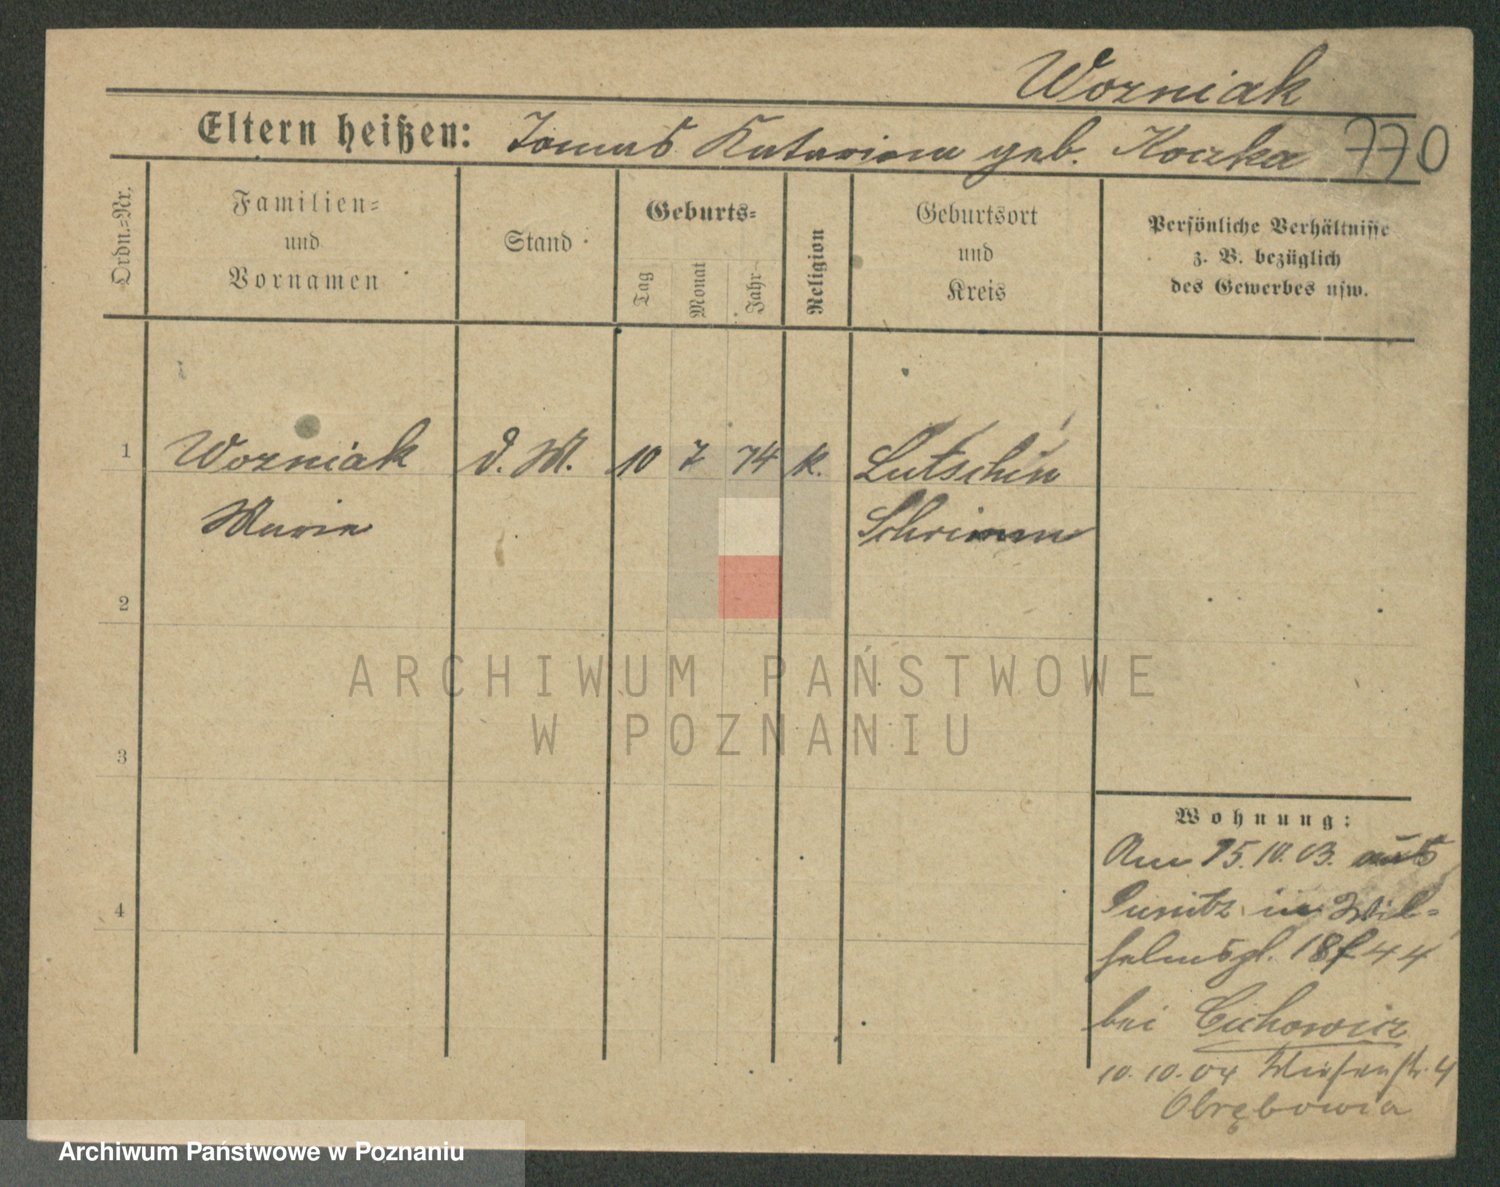 Wozniak
Eltern heißen: Tomas Katarina geb. Koczka 770
Ordn.=Nr.
Familien=
und
Vornamen
Stand
Geburts=
Tag
Monat
Jahr
Religion
Geburtsort
und
Kreis
Persönliche Verhältnisse
z. B. bezüglich
des Gewerbes usw.
1 Wozniak d. M. 10 7 74 k. Lutschin
Marie Schrimm
2
3
4
Wohnung:
Am 15.10.03. aus
Punitz in Wil=
helmspl. 18 44
bei
10.10.04 Wiesenstr. 4
Obrębowia
ARCHIWUM PAŃSTWOWE
W POZNANIU
Archiwum Państwowe w Poznaniu